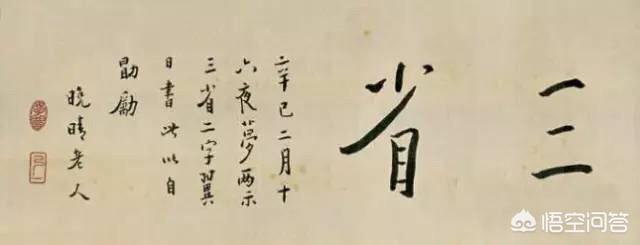 三省
辛巳二月十
六夜夢兩示
三省二字翼
日書此以自
勖勵
晚晴老人
悟空问答